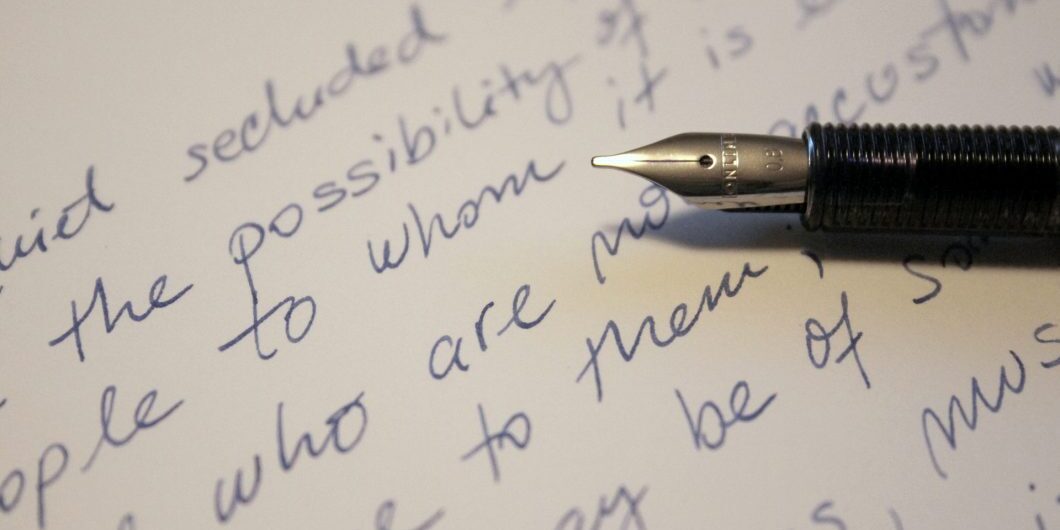 uiet secluded
the possibility of
ople to whom it is
who are no accustom
to them;
ay be of so
mus